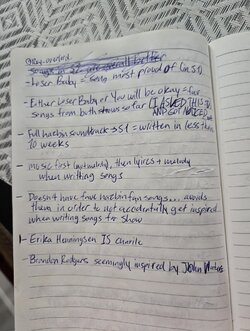 songs in S2 are overall better
- Loser Baby = song most proud of (in S1)
- Either Loser Baby or You will be okay = fav
songs from both shows so far (I ASKED THIS
AND GOT NOTICED
- Full hazbin soundtrack S1 = written in less than
10 weeks
- music first (not really), then lyrics + melody
when writing songs
- Doesn't have fave hazbin fan songs... avoids
them in order to not accidentally get inspired
when writing songs for show
- Erika Henningsen IS Charlie
- Brandon Rodgers seemingly inspired by John Waters